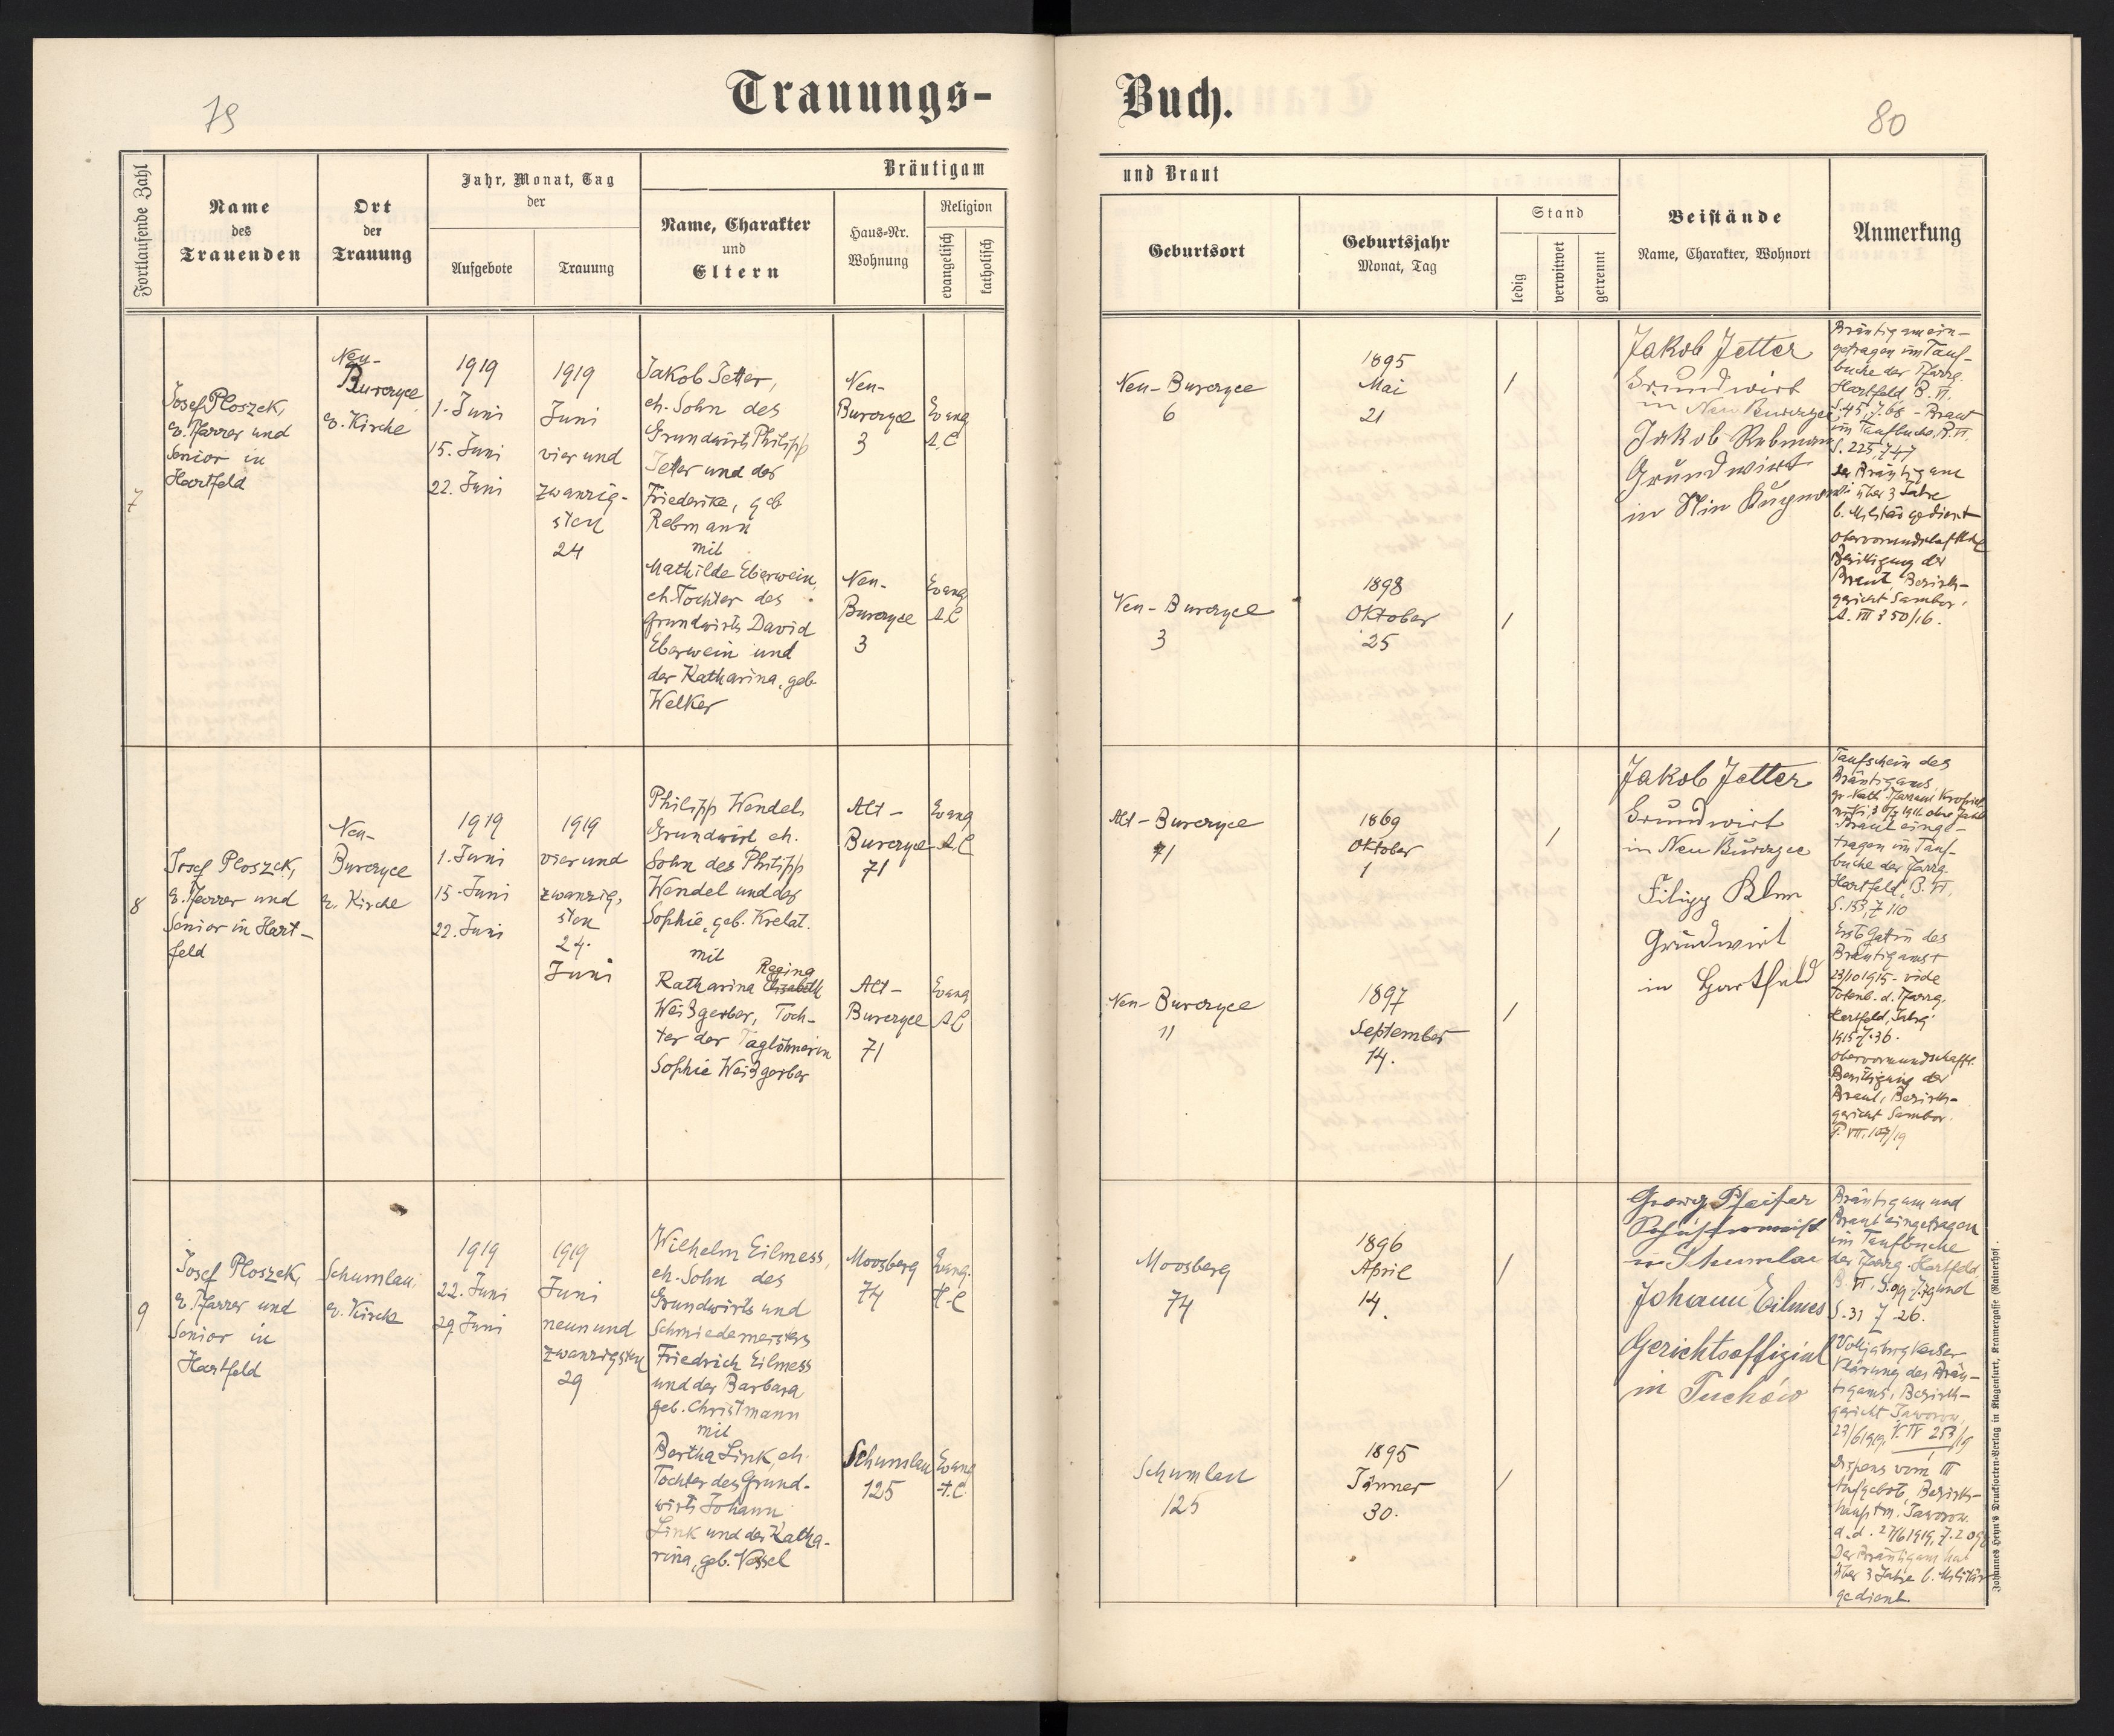 79
Trauungs-
Buch.
80
Fortlaufende Zahl
Name
des
Trauenden
Ort
der
Trauung
Jahr, Monat, Tag
der
Aufgebote
Trauung
Bräutigam
Name, Charakter
und
Eltern
Haus-Nr.
Wohnung
Religion
evangelisch
katholisch
und Braut
Geburtsort
Geburtsjahr
Monat, Tag
Stand
ledig
verwitwet
getrennt
Beistände
Name, Charakter, Wohnort
Anmerkung
7
Josef Ploszek,
e. Pfarrer und
Senior in
Hartfeld
Neu-
Burczyce
e. Kirche
1919
1. Juni
15. Juni
22. Juni
1919
Juni
vier und
zwanzig-
sten
24
Jakob Jetter,
eh. Sohn des
Grundwirts Philipp
Jetter und der
Friederike, geb
Rebmann
mit
Mathilde Eberwein,
eh. Tochter des
Grundwirts David
Eberwein und
der Katharina, geb.
Welker
Neu-
Burczyce
3
Evang
A.C
Neu-
Burczyce
3
Evang
A.C
Neu-Burczyce
6
1895
Mai
21
/
Neu-Burczyce
3
1898
Oktober
25
/
Jakob Jetter
Grundwirt
in Neu Burczyce
Jakob Rebmann
Grundwirt
in
Bräutigam ein-
getragen im Tauf-
buche der Pfarrg.
Hartfeld B. VI.
S. 45, Z. 68 - Braut
im Taufbuche, B. VI.
S. 225, Z 47
Der Bräutigam
über 3 Jahre
b. Militär gedient
Obervormundschaftliche
Bewilligung der
Braut Bezirks-
gericht Sambor,
A. III 350/16.
8
Josef Ploszek,
e. Pfarrer und
Senior in Hart-
feld
Neu-
Burczyce
e. Kirche
1919
1. Juni
15. Juni
22. Juni
1919
vier und
zwanzig-
sten
24.
Juni
Philipp Wendel,
Grundwirt eh.
Sohn des Philipp
Wendel und der
Sophie, geb. Krelat.
mit
Regina
Katharina Elisabeth
Weißgerber, Toch-
ter der Taglöhnerin
Sophie Weißgerber
Alt-
Burczyce
71
Evang
A.C
Alt-
Burczyce
71
Evang
A.C
Alt-Burczyce
71
1869
Oktober
1
/
Neu-Burczyce
11
1897
September
14.
/
Jakob Jetter
Grundwirt
in Neu Burczyce
Filipp
Grundwirt
in Hartfeld
Taufschein des
Bräutigams
Braut einge-
tragen im Tauf-
buche der Pfarrg.
Hartfeld, B. VI,
S. 153, Z 110
Erste Gattin des
Bräutigams †
23/10 1915 - vide
Totenb. d. Pfarrg.
Hartfeld, Jahrg
1915 Z. 36.
Obervormundschaftl.
Bewilligung der
Braut, Bezirks-
gericht Sambor.
P. VII. 107/19
9
Josef Ploszek,
e. Pfarrer und
Senior in
Hartfeld
Schumlau
e. Kirche
1919
22. Juni
29. Juni
1919
Juni
neun und
zwanzigsten
29
Wilhelm Eilmess,
eh. Sohn des
Grundwirts und
Schmiedemeisters
Friedrich Eilmess
und der Barbara
geb. Christmann
mit
Bertha Link, eh.
Tochter des Grund-
wirts Johann
Link und der Katha-
rina, geb. Nessel
Moosberg
74
Evang.
H.C
Schumlau
125
Evang
A.C
Moosberg
74
1896
April
14.
/
Schumlau
125
1895
Jänner
30.
/
Georg Pfeifer
in Schumlau
Johann Eilmes
Gerichtsoffizial
in Tuchów
Bräutigam und
Braut eingetragen
im Taufbuche
der Pfarrg. Hartfeld
B. VI, S. 99, Z. 19 und
S. 31 Z 26.
Volljährigkeitser-
klärung des Bräu-
tigams, Bezirks-
gericht Jaworow,
23/6 1919. V. IV 253/19
Dispens vom III
Aufgebot, Bezirks-
hauptm. Jaworow.
Der Bräutigam hat
über 3 Jahre b. Militär
gedient.
Johannes Heyn's Drucksorten-Verlag in Klagenfurt, Kramergasse (Rainerhof).